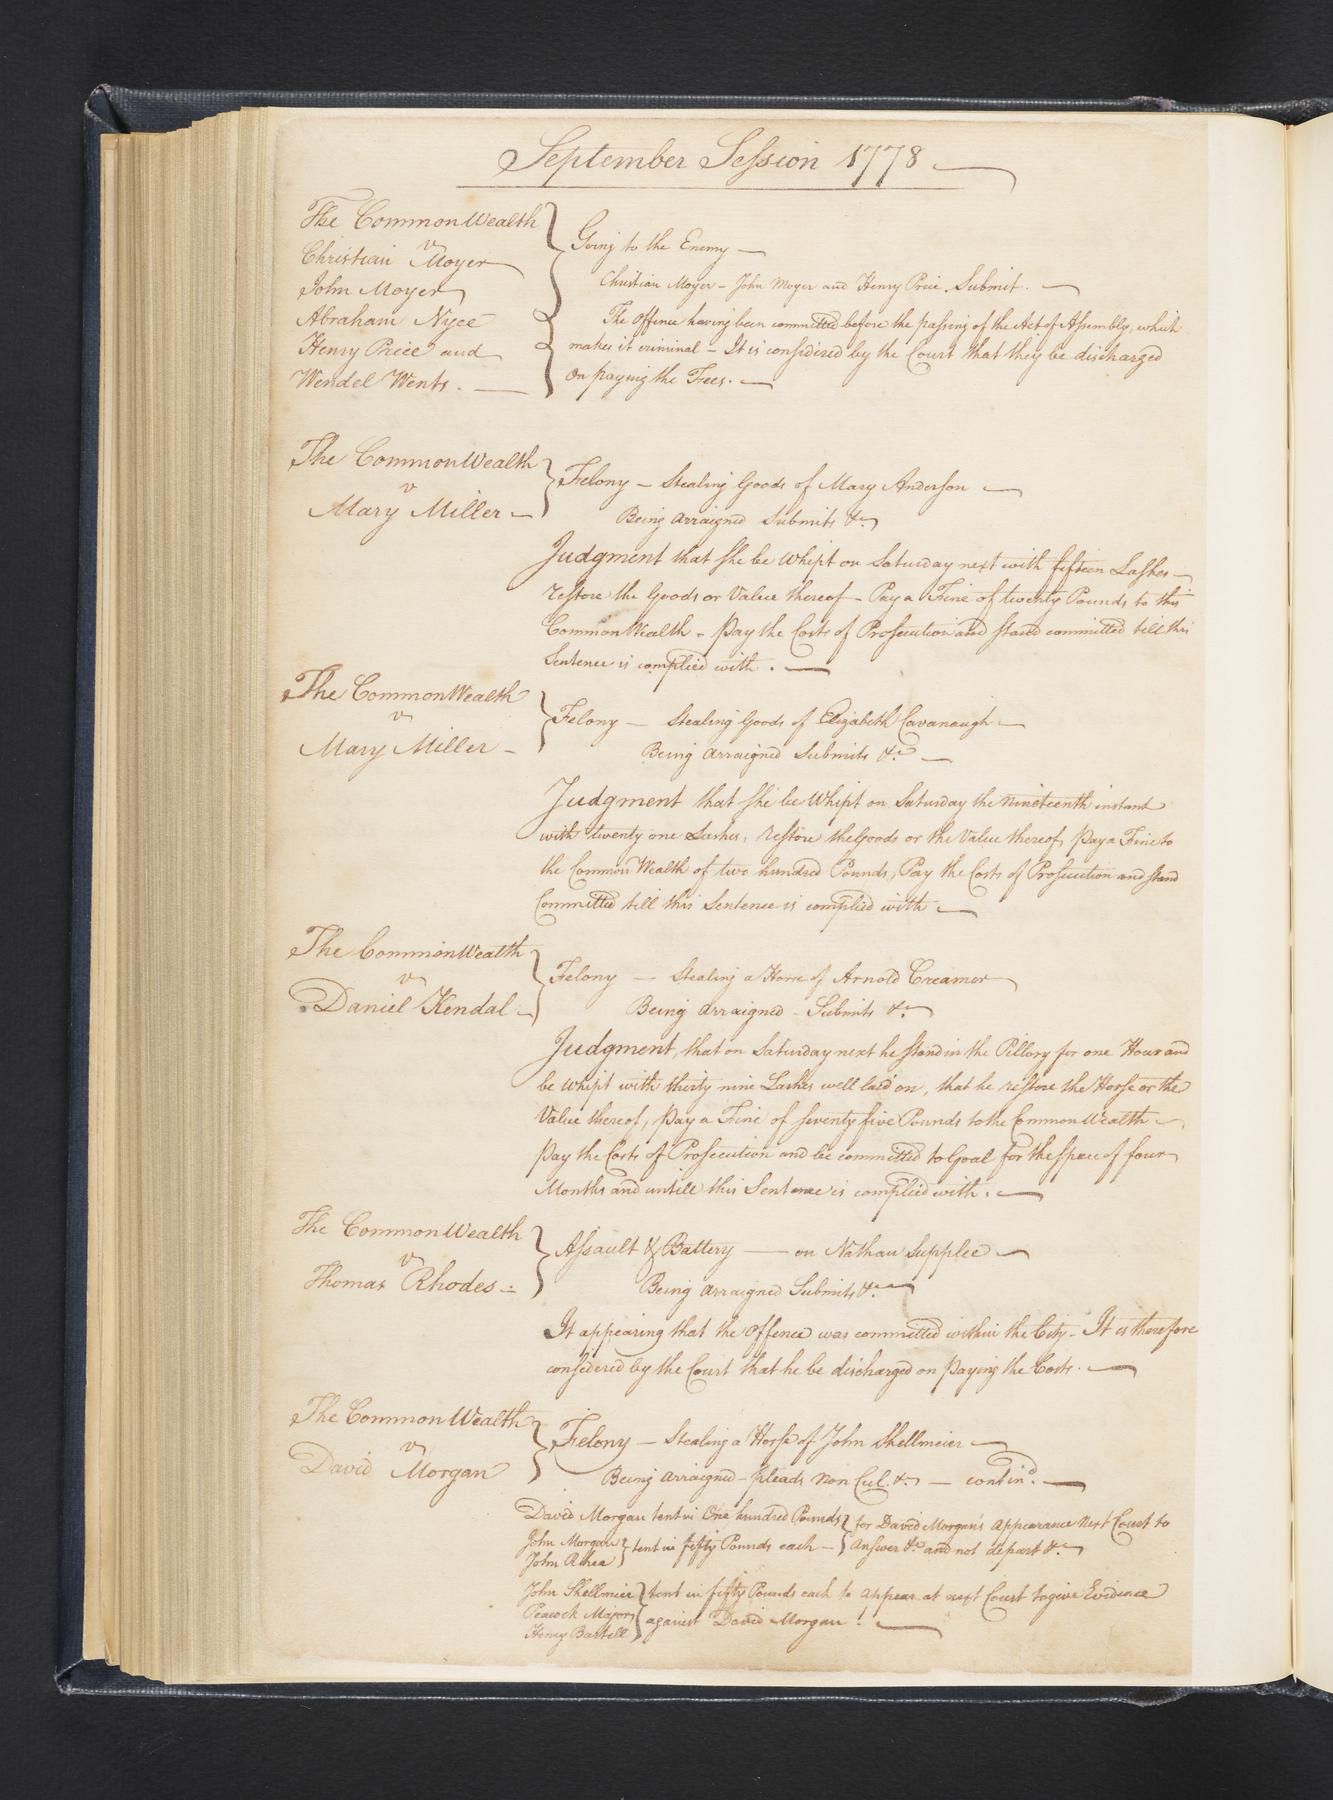 September Session 1778
The CommonWealth
v
Christian Moyer
John Moyer
Abraham Nyce
Henry Price and
Wendel Wents.
Going to the Enemy
Christian Moyer - John Moyer and Henry Price. Submit.
The offence having been committed before the passing of the Act of Assembly, which
makes it criminal - It is considered by the Court that they be discharged
on paying the Fees.
The CommonWealth
v
Mary Miller
Felony - Stealing Goods of Mary Anderson
Being arraigned Submits &c
Judgment that she be whipt on Saturday next with fifteen Lashes
restore the Goods or Value thereof - Pay a Fine of twenty Pounds to this
CommonWealth - pay the Costs of Prosecution and stand committed till this
Sentence is complied with.
The CommonWealth
v
Mary Miller -
Felony - Stealing Goods of Elizabeth Cavanaugh
Being arraigned Submits &c
Judgment that she be Whipt on Saturday the Nineteenth instant
with twenty one Lashes, restore the Goods or the Value thereof, pay a Fine to
the CommonWealth of two hundred Pounds, Pay the Costs of Prosecution and stand
Committed till this Sentence is complied with
The CommonWealth
v
Daniel Kendal
Felony - Stealing a Horse of Arnold Creamer
Being arraigned - Submits &c
Judgment, that on Saturday next he stand in the Pillory for one Hour and
be whipt with thirty nine Lashes well laid on, that he restore the Horse or the
Value thereof, pay a Fine of seventy five Pounds to the CommonWealth
pay the Costs of Prosecution and be committed to Goal for the space of four
Months and untill this Sentence is complied with.
The CommonWealth
v
Thomas Rhodes
Assault & Battery - on Nathan Supplee
Being arraigned Submits &c
It appearing that the offence was committed within the City - It is therefore
considered by the Court that he be discharged on paying the Costs.
The CommonWealth
v
David Morgan
Felony - Stealing a Horse of John Shellmeier
Being arraigned - pleads Non Cul. &c - contin.d
David Morgan tent in One hundred Pounds } for David Morgan's appearance next Court to
John Morgan } tent in fifty Pounds each - } answer &c and not depart &c
John Rhea
John Shellmeier } tent in fifty Pounds each to appear at next Court to give Evidence
Peacock Major } against David Morgan!
Henry Bartell